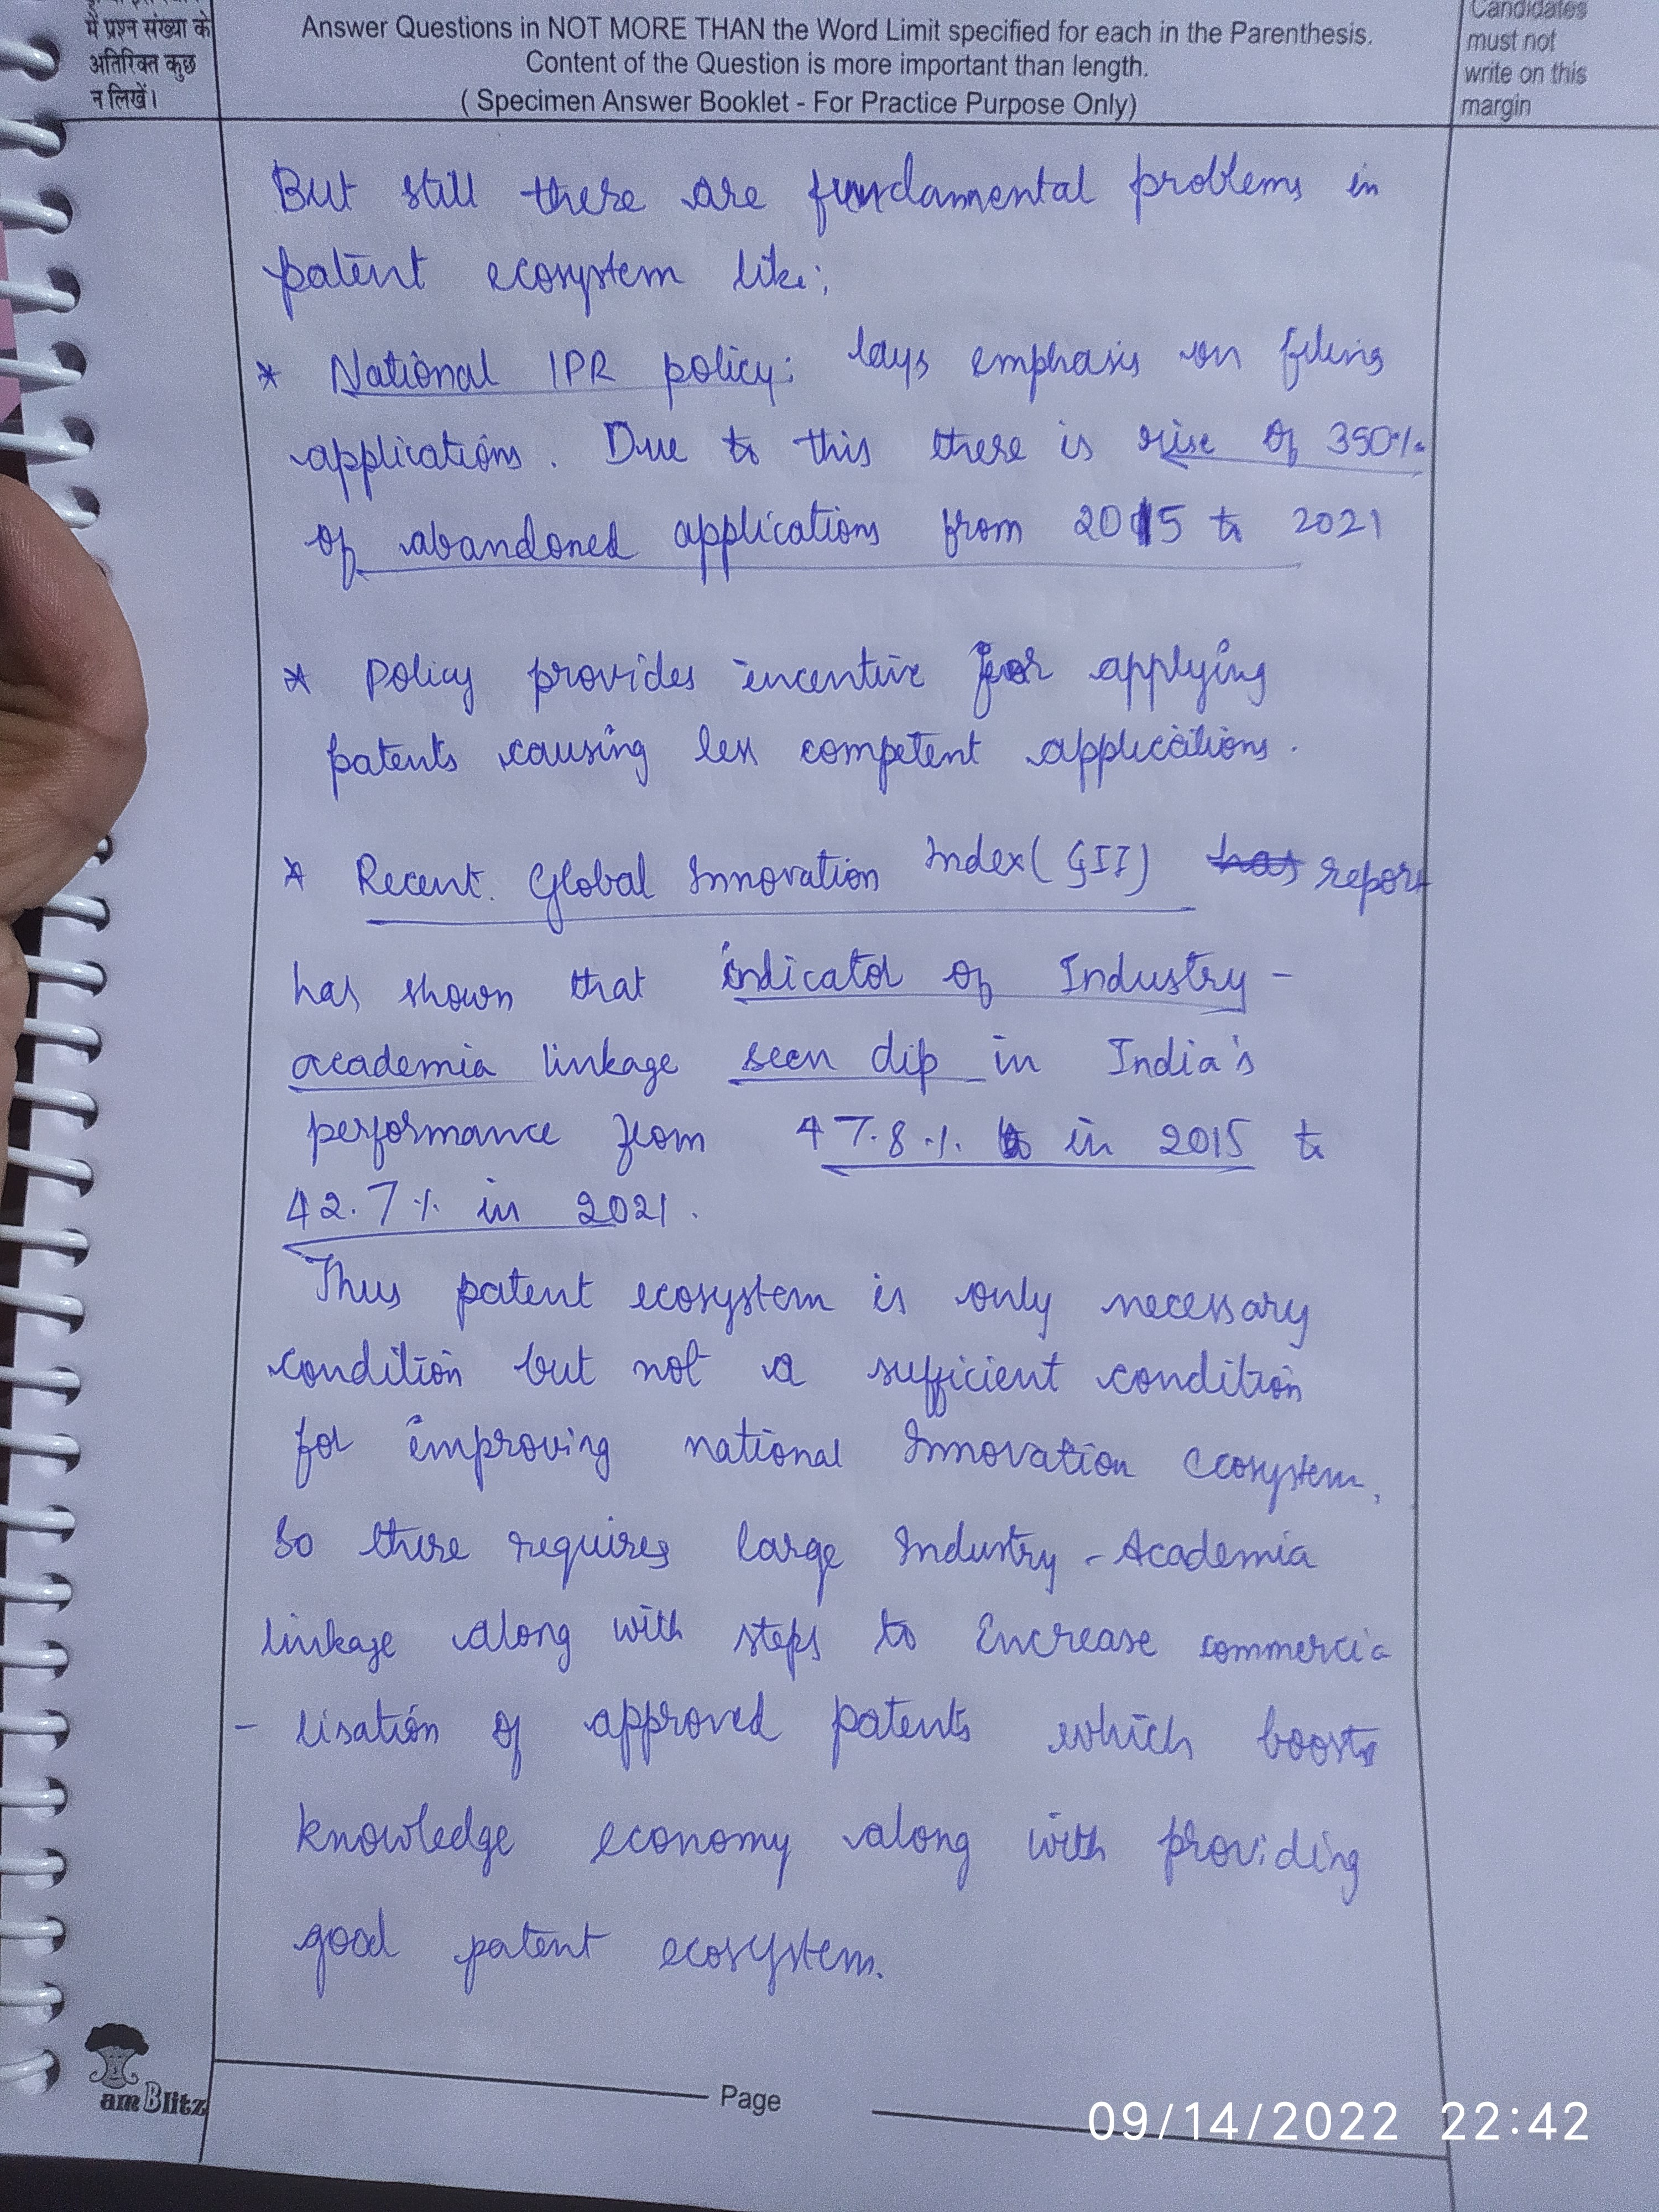 में प्रश्न संख्या के
अतिरिक्त कुछ
न लिखें।
Answer Questions in NOT MORE THAN the Word Limit specified for each in the Parenthesis.
Content of the Question is more important than length.
( Specimen Answer Booklet - For Practice Purpose Only)
Candidates
must not
write on this
margin
But still there are fundamental problems in
patent ecosystem like;
* National IPR policy: lays emphasis on filing
applications. Due to this there is rise of 350%
of abandoned applications from 2015 to 2021
* Policy provides incentive for applying
patents causing less competent applications.
* Recent. Global Innovation Index (GII) has report
has shown that indicator of Industry -
academia linkage seen dip in India's
performance from 47.8% in 2015 to
42.7% in 2021.
Thus patent ecosystem is only necessary
condition but not a sufficient condition
for improving national Innovation ecosystem.
So there requires large Industry - Academia
linkage along with steps to Encrease commercia
- lisation of approved patents which boosts
knowledge economy along with providing
good patent ecosystem.
am Blitz
Page
09/14/2022 22:42